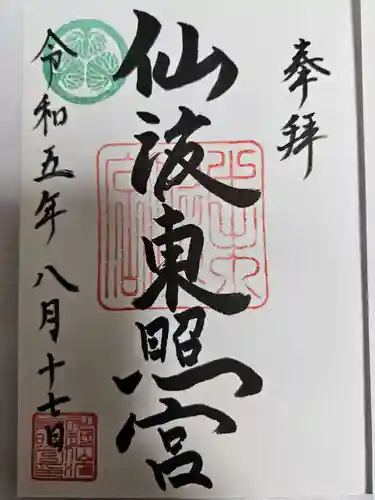 奉拝
仙波東照宮
令和五年八月十七日